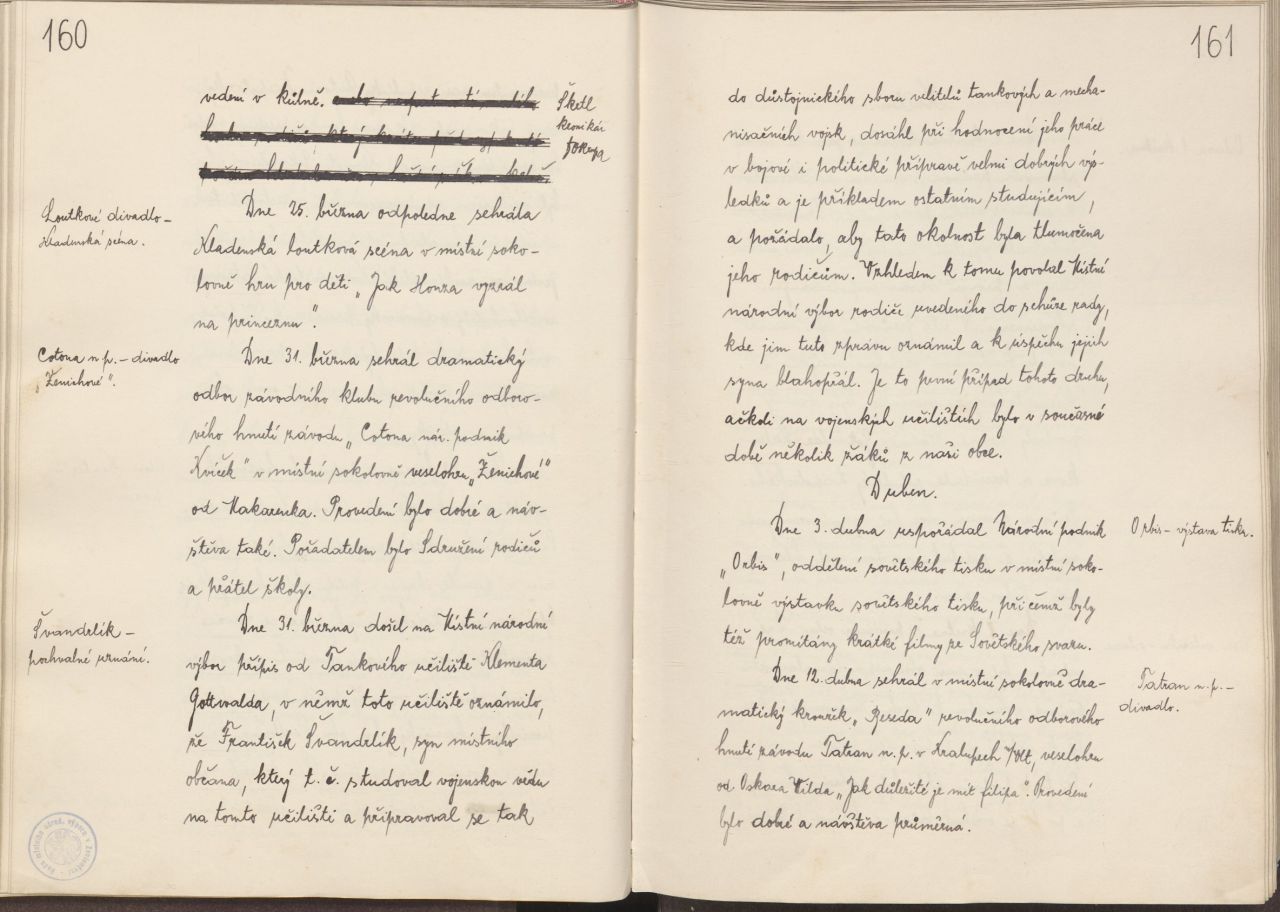 160
vedení v kůlně.
Šketl
kronikář
Dne 25. března odpoledne sehrála
Loutkové divadlo –
Kladenská scéna.
Kladenská loutková scéna v místní soko-
lovně hru pro děti „Jak Honza vyzrál
na princeznu“.
Dne 31. března sehrál dramatický
Cotona n. p. – divadlo
„Ženichové“.
odbor závodního klubu revolučního odboro-
vého hnutí závodu „Cotona nár. podnik
Kvíček“ v místní sokolovně veselohru „Ženichové“
od Makarenka. Provedení bylo dobré a náv-
štěva také. Pořadatelem bylo Sdružení rodičů
a přátel školy.
Dne 31. března došel na Místní národní
Švandrlík –
pochvalné uznání.
výbor přípis od Tankového učiliště Klementa
Gottwalda, v němž toto učiliště oznámilo,
že František Švandrlík, syn místního
občana, který t. č. studoval vojenskou vědu
na tomto učilišti a připravoval se tak
161
do důstojnického sboru velitelů tankových a mecha-
nisačních vojsk, dosáhl při hodnocení jeho práce
v bojové i politické přípravě velmi dobrých vý-
ledků a je příkladem ostatním studujícím,
a požádalo, aby tato okolnost byla tlumočena
jeho rodičům. Vzhledem k tomu povolal Místní
národní výbor rodiče uvedeného do schůze rady,
kde jim tuto zprávu oznámil a k úspěchu jejich
syna blahopřál. Je to první případ tohoto druhu,
ačkoli na vojenských učilištích bylo v současné
době několik žáků z naší obce.
Duben.
Dne 3. dubna uspořádal Národní podnik
Orbis – výstava tisku.
„Orbis“, oddělení sovětského tisku v místní soko-
lovně výstavku sovětského tisku, při čemž byly
též promítány krátké filmy ze Sovětského svazu.
Dne 12. dubna sehrál v místní sokolovně dra-
Tatran n. p. –
divadlo.
matický kroužek „Reseda“ revolučního odborového
hnutí závodu Tatran n. p. v Kralupech n/Vlt, veselohru
od Oskara Vilda „Jak důležité je mít filipa“. Provedení
bylo dobré a návštěva průměrná.